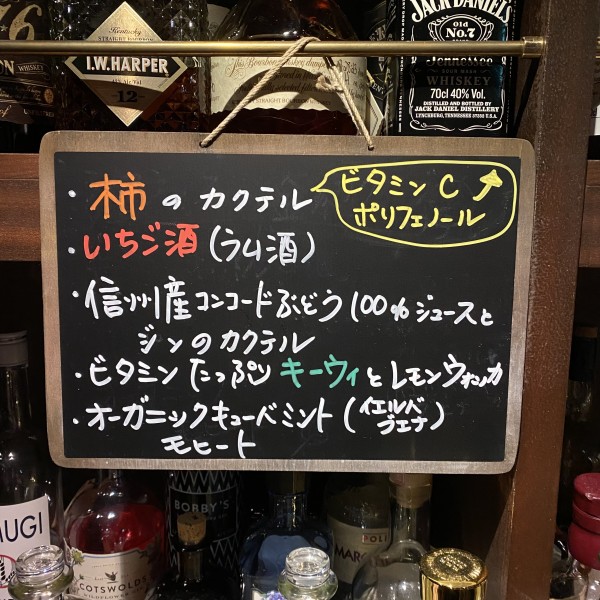 I.W.HARPER
12
JACK DANIEL'S
OLD
No.7
WHISKEY
70cl 40% Vol.
DISTILLED AND BOTTLED BY
JACK DANIEL DISTILLERY
LYNCHBURG, TENNESSEE
・柿のカクテル
ビタミンC↑
ポリフェノール
・いちご酒(ラム酒)
・信州産コンコードぶどう100%ジュースと
ジンのカクテル
・ビタミンたっぷりキーウィとレモンウォッカ
・オーガニックキューバミント(イエルバ
ブエナ)
モヒート
BOBBY'S
COTSWOLDS